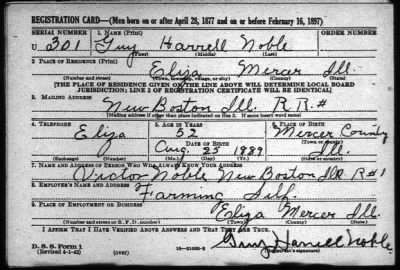 REGISTRATION CARD—(Men born on or after April 28, 1877 and on or before February 16, 1897)
SERIAL NUMBER 1. NAME (Print) ORDER NUMBER
U 301 Guy Harrell Noble
(First) (Middle) (Last)
2. PLACE OF RESIDENCE (Print)
Eliza Mercer Ill.
(Number and street) (Town, township, village, or city) (County) (State)
[THE PLACE OF RESIDENCE GIVEN ON THE LINE ABOVE WILL DETERMINE LOCAL BOARD
JURISDICTION; LINE 2 OF REGISTRATION CERTIFICATE WILL BE IDENTICAL]
3. MAILING ADDRESS
New Boston Ill. R R #
[Mailing address if other than place indicated on line 2. If same insert word same]
4. TELEPHONE 5. AGE IN YEARS 6. PLACE OF BIRTH
Eliza 52 Mercer County
DATE OF BIRTH (Town or county)
Aug. 25 1889 Ill.
(Exchange) (Number) (Mo.) (Day) (Yr.) (State or country)
7. NAME AND ADDRESS OF PERSON WHO WILL ALWAYS KNOW YOUR ADDRESS
Victor Noble New Boston Ill R #1
8. EMPLOYER'S NAME AND ADDRESS
Farming Self.
9. PLACE OF EMPLOYMENT OR BUSINESS
Eliza Mercer Ill.
(Number and street or R. F. D. number) (Town) (County) (State)
I AFFIRM THAT I HAVE VERIFIED ABOVE ANSWERS AND THAT THEY ARE TRUE.
D. S. S. Form 1
(Revised 4-1-42) Guy Harrell Noble